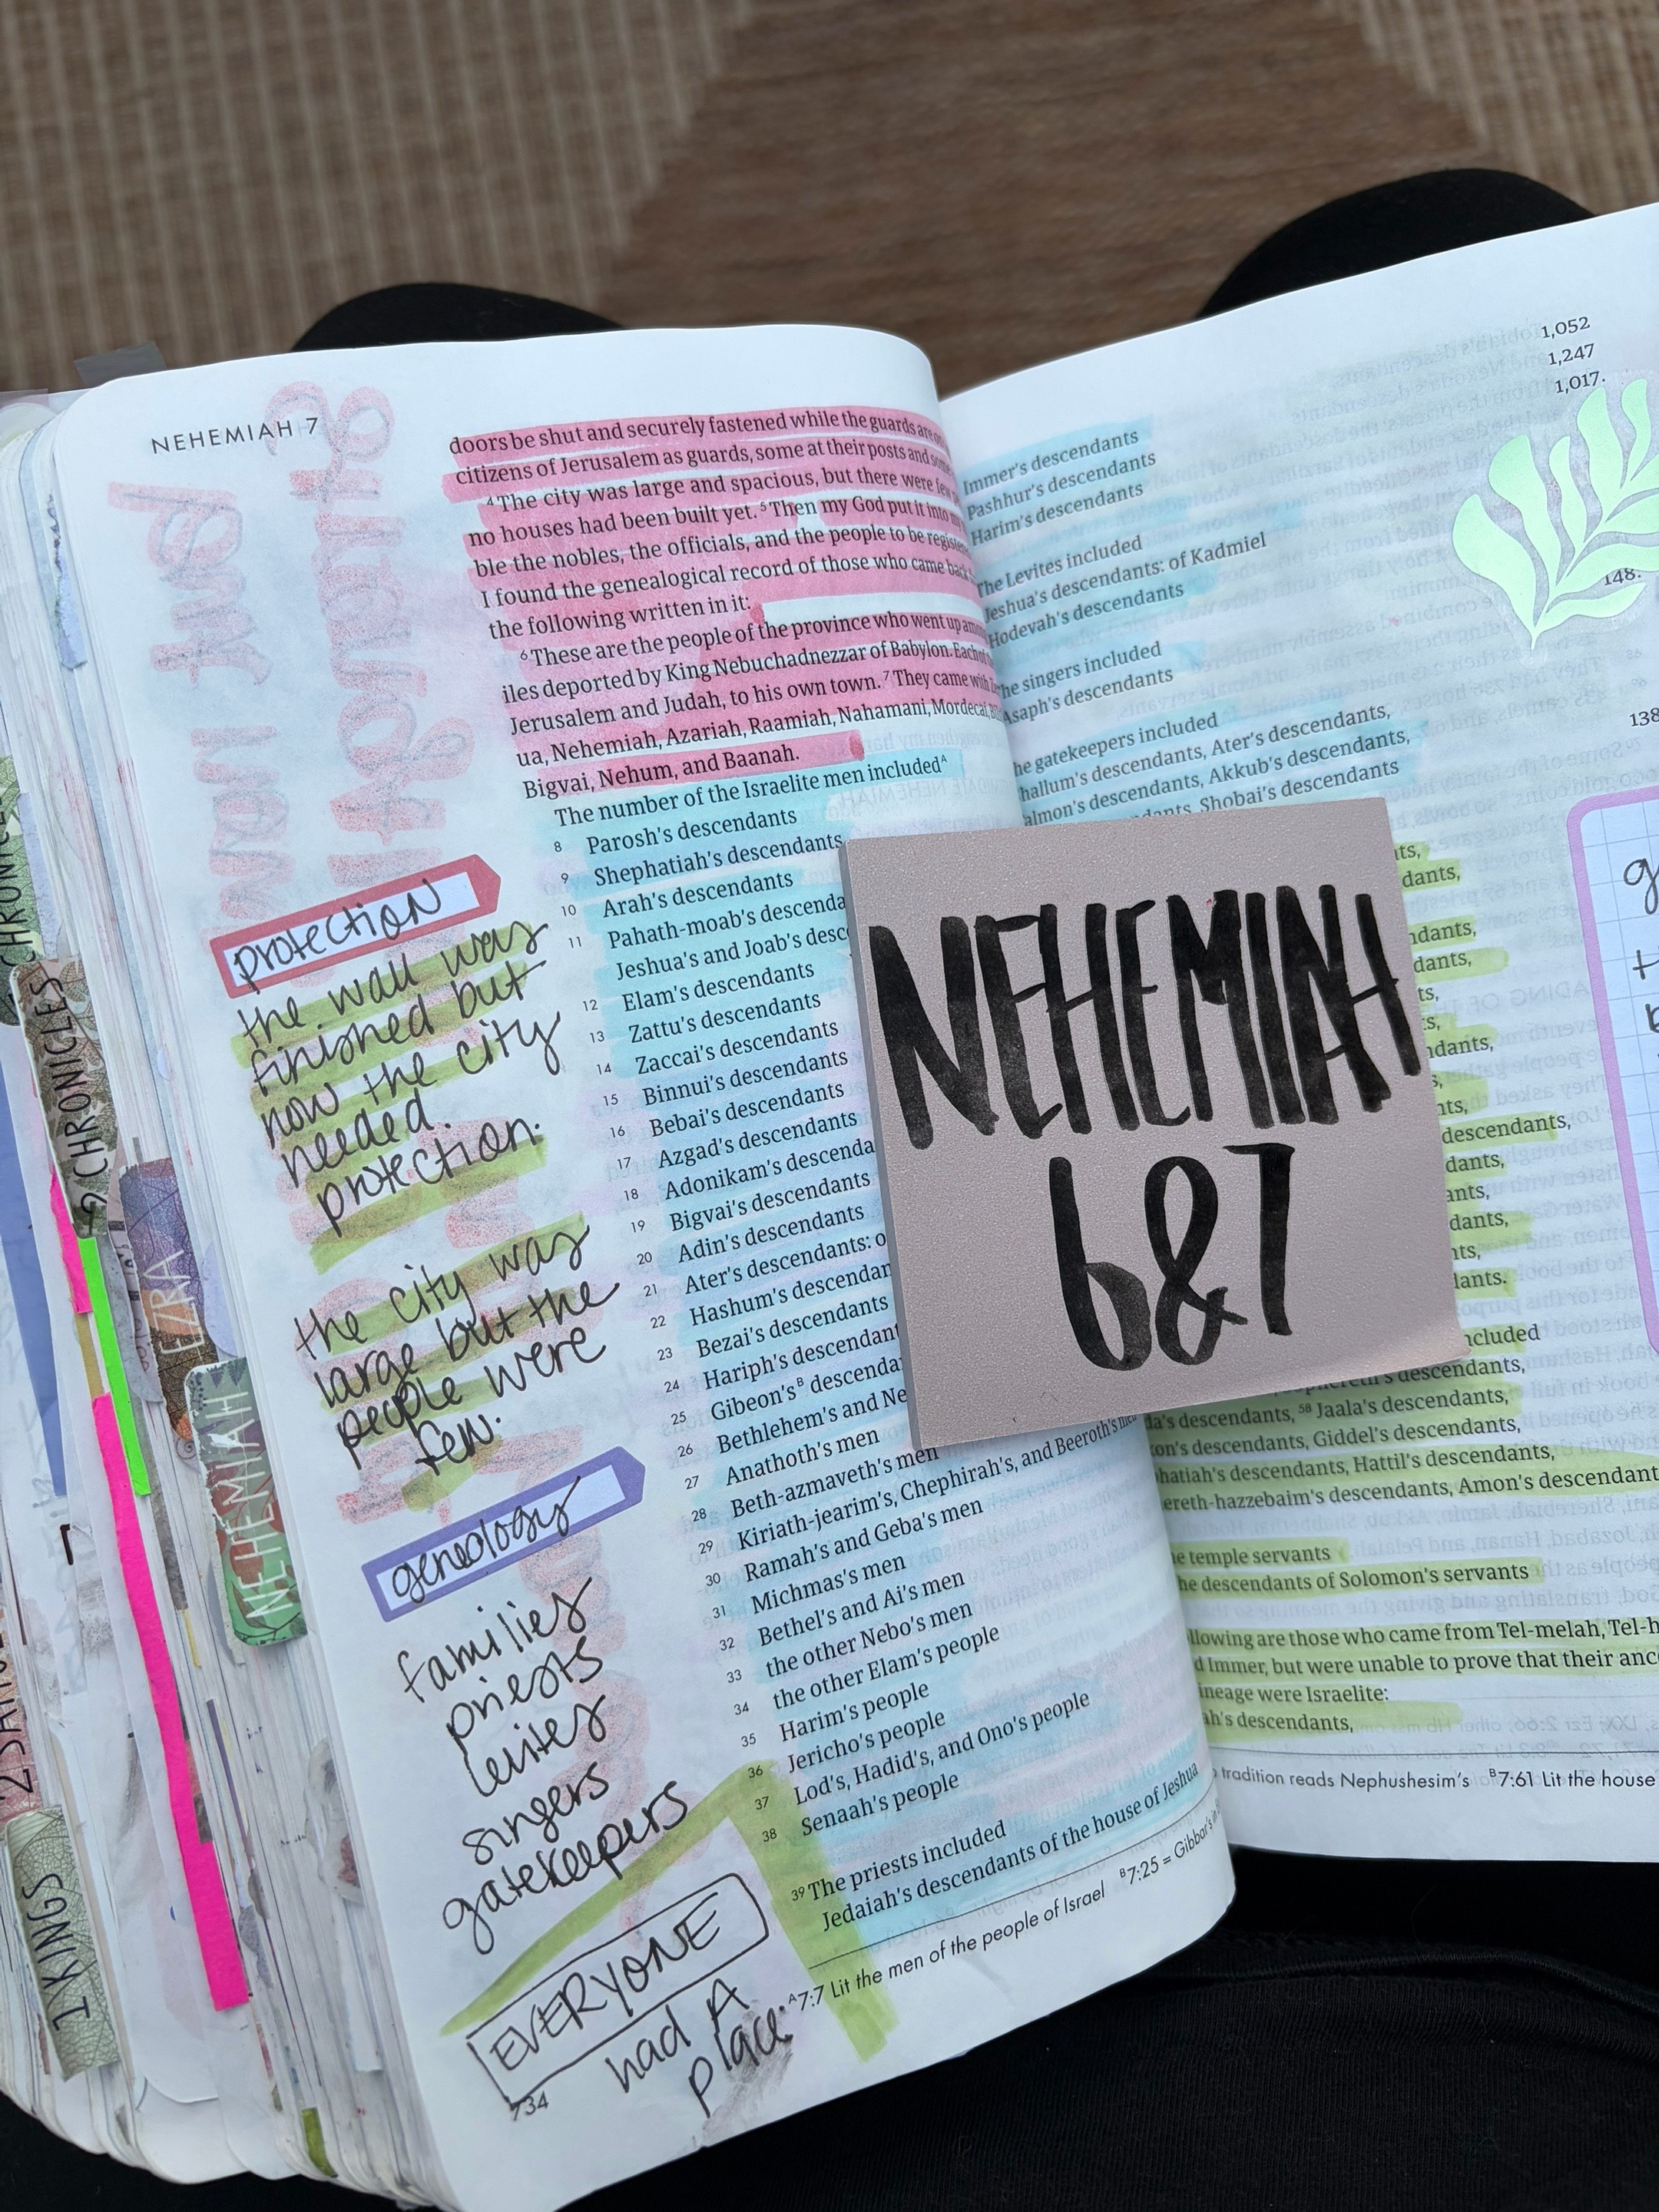 NEHEMIAH 7
doors be shut and securely fastened while the guards are
citizens of Jerusalem as guards, some at their posts and
⁴The city was large and spacious, but there were few
no houses had been built yet. ⁵Then my God put it into my
ble the nobles, the officials, and the people to be
I found the genealogical record of those who came back
the following written in it:
⁶These are the people of the province who went up
iles deported by King Nebuchadnezzar of Babylon. Each of
Jerusalem and Judah, to his own town. ⁷They came with
ua, Nehemiah, Azariah, Raamiah, Nahamani, Mordecai,
Bigvai, Nehum, and Baanah.
The number of the Israelite men includedᴬ
8 Parosh's descendants
9 Shephatiah's descendants
10 Arah's descendants
11 Pahath-moab's descenda
Jeshua's and Joab's desc
12 Elam's descendants
13 Zattu's descendants
14 Zaccai's descendants
15 Binnui's descendants
16 Bebai's descendants
17 Azgad's descendants
18 Adonikam's descenda
19 Bigvai's descendants
20 Adin's descendants
21 Ater's descendants: o
22 Hashum's descendan
23 Bezai's descendants
24 Hariph's descendant
25 Gibeon'sᴮ descenda
26 Bethlehem's and Ne
27 Anathoth's men
28 Beth-azmaveth's men
29 Kiriath-jearim's, Chephirah's, and Beeroth's men
30 Ramah's and Geba's men
31 Michmas's men
32 Bethel's and Ai's men
33 the other Nebo's men
34 the other Elam's people
35 Harim's people
36 Jericho's people
37 Lod's, Hadid's, and Ono's people
38 Senaah's people
³⁹The priests included
Jedaiah's descendants of the house of Jeshua
ᴬ7:7 Lit the men of the people of Israel ᴮ7:25 = Gibbar's in
734
protection
the wall was
finished but
now the city
needed
protection.
the city was
large but the
people were
few.
geneology
families
priests
levites
singers
gatekeepers
EVERYONE
had A
place.
CHRONICLES
2 CHRONICLES
EZRA
NEHEMIAH
1 KINGS
NEHEMIAH
6&7
1,052
1,247
1,017.
Immer's descendants
Pashhur's descendants
Harim's descendants
The Levites included
Jeshua's descendants: of Kadmiel
Hodevah's descendants
148.
he singers included
Asaph's descendants
138
he gatekeepers included
hallum's descendants, Ater's descendants,
almon's descendants, Akkub's descendants,
Shobai's descendants
dants,
descendants,
dants,
lants.
ncluded
descendants,
la's descendants, ⁵⁸Jaala's descendants,
kon's descendants, Giddel's descendants,
hatiah's descendants, Hattil's descendants,
ereth-hazzebaim's descendants, Amon's descendant
e temple servants
he descendants of Solomon's servants
llowing are those who came from Tel-melah, Tel-h
d Immer, but were unable to prove that their anc
ineage were Israelite:
ah's descendants,
tradition reads Nephushesim's ᴮ7:61 Lit the house